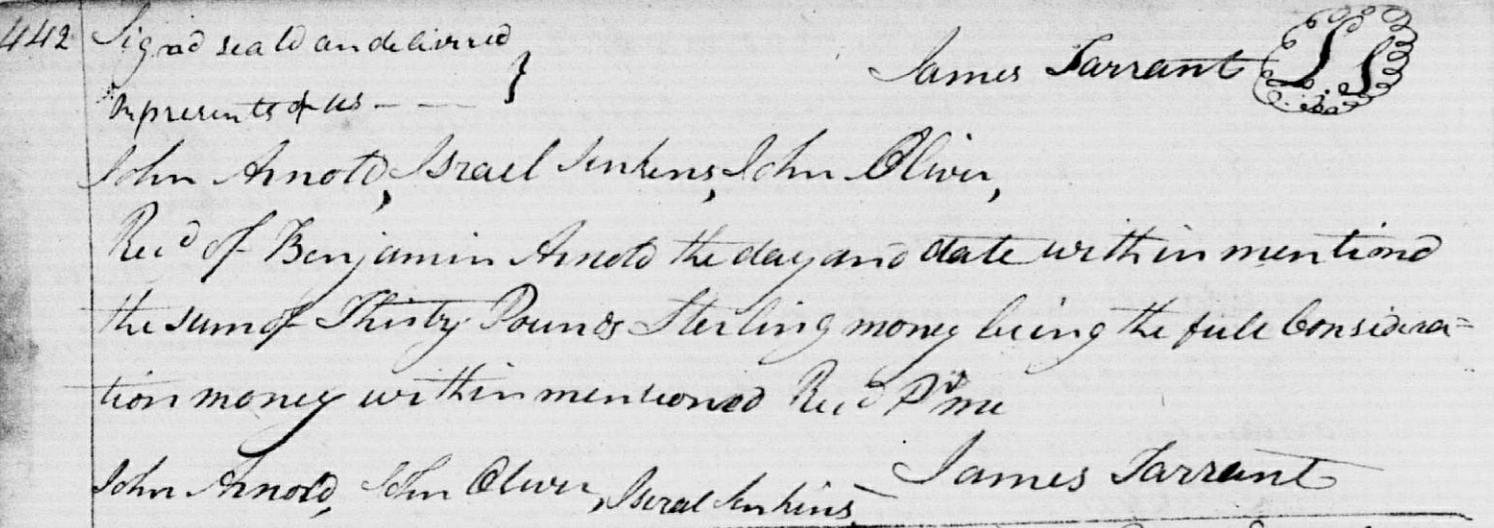 442 Signd seald an delivired
in presents of us - - - } James Tarrant L.S
John Arnold, Israel Jenkens, John Oliver,
Recd of Benjamin Arnold the day and date within mentiond
the sum of Thirty Pounds Sterling money being the full Considera=
tion money within mentioned Recd Pr me
John Arnold, John Oliver, Iseral Jenkins James Tarrant